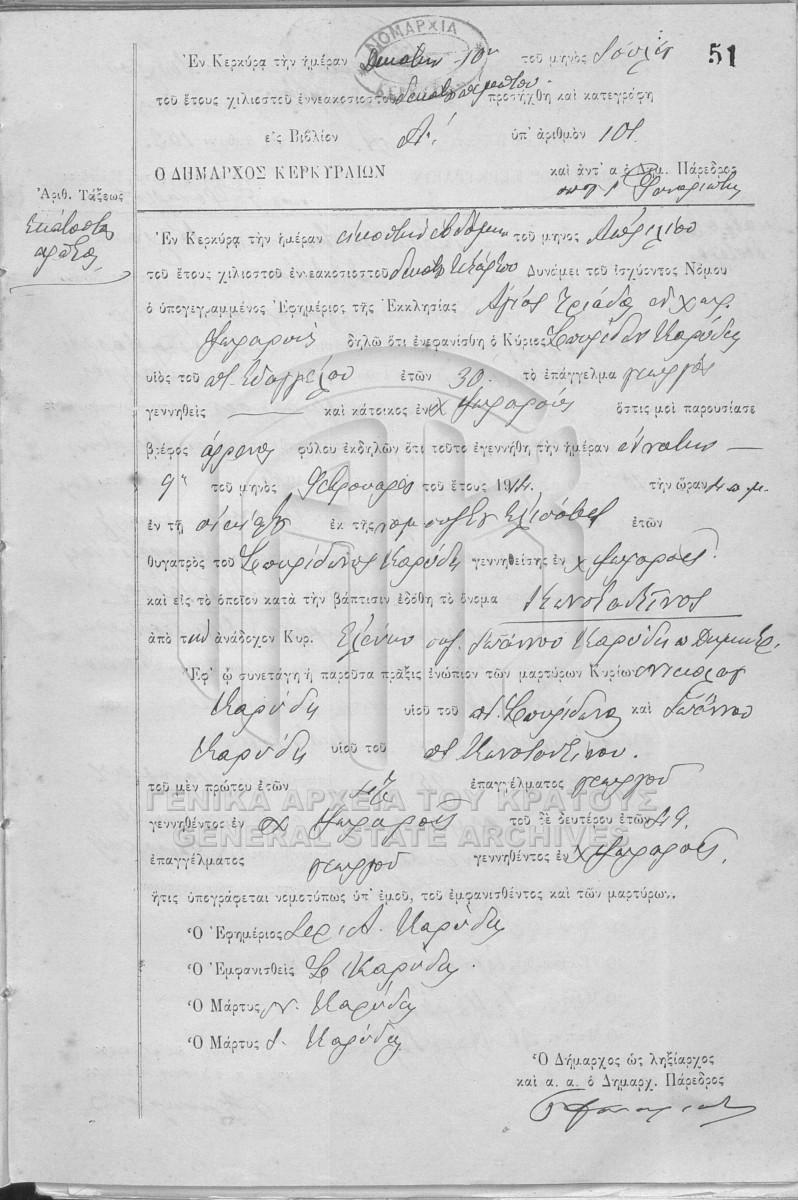 ΝΟΜΑΡΧΙΑ
51
Ἐν Κερκύρᾳ τὴν ἡμέραν δεκάτην 10ην τοῦ μηνὸς
τοῦ ἔτους χιλιοστοῦ ἐννεακοσιοστοῦ προσήχθη καὶ κατεγράφη
εἰς Βιβλίον Α! ὑπ' ἀριθμὸν 101
Ο ΔΗΜΑΡΧΟΣ ΚΕΡΚΥΡΑΙΩΝ
καὶ ἀντ' α ὁ Δημ. Πάρεδρος
Ἀριθ. Τάξεως
Ἐν Κερκύρᾳ τὴν ἡμέραν εἰκοστὴν ἑβδόμην τοῦ μηνος Ἀπριλίου
τοῦ ἔτους χιλιοστοῦ ἐννεακοσιοστοῦ δεκάτου τετάρτου Δυνάμει τοῦ ἰσχύοντος Νόμου
ὁ ὑπογεγραμμένος Ἐφημέριος τῆς Ἐκκλησίας Ἁγίας Τριάδος
Ψωραροὺς δηλῶ ὅτι ἐνεφανίσθη ὁ Κύριος Σπυρίδων Καρύδης
υἱὸς τοῦ ποτ. Εὐαγγέλου ἐτῶν 30. τὸ ἐπάγγελμα γεωργὸς
γεννηθεὶς — καὶ κάτοικος ἐν χ Ψωραροὺς ὅστις μοὶ παρουσίασε
βρέφος ἄρρεν φύλου ἐκδηλῶν ὅτι τοῦτο ἐγεννήθη τὴν ἡμέραν ἐννάτην —
9η τοῦ μηνὸς Φεβρουαρίου τοῦ ἔτους 1914. τὴν ὥραν 4 π.μ.
ἐν τῇ οἰκίᾳ του ἐκ τῆς συζύγου Ἐλισάβετ ἐτῶν
θυγατρὸς τοῦ Σπυρίδωνος Καρύδη γεννηθείσης ἐν χ Ψωραροὺς
καὶ εἰς τὸ ὁποῖον κατὰ τὴν βάπτισιν ἐδόθη τὸ ὄνομα Κωνσταντῖνος
ἀπὸ τὴν ἀνάδοχον Κυρ. Ἑλένην συζ. Ἰωάννου Καρύδη
Ἐφ' ᾧ συνετάγη ἡ παροῦσα πρᾶξις ἐνώπιον τῶν μαρτύρων Κυρίων Νικολάου
Καρύδη υἱοῦ τοῦ ποτ. Σπυρίδωνος καὶ Ἰωάννου
Καρύδη υἱοῦ τοῦ ποτ Κωνσταντίνου.
τοῦ μὲν πρώτου ἐτῶν ἐπαγγέλματος γεωργοῦ
ΓΕΝΙΚΑ ΑΡΧΕΙΑ ΤΟΥ ΚΡΑΤΟΥΣ
γεννηθέντος ἐν χ Ψωραροὺς τοῦ δὲ δευτέρου ἐτῶν 49.
GENERAL STATE ARCHIVES
ἐπαγγέλματος γεωργοῦ γεννηθέντος ἐν χ Ψωραροὺς.
ἥτις ὑπογράφεται νομοτύπως ὑπ' ἐμοῦ, τοῦ ἐμφανισθέντος καὶ τῶν μαρτύρων.
Ὁ Ἐφημέριος Ἱερ. Α. Καρύδης
Ὁ Ἐμφανισθεὶς Σ Καρύδης
Ὁ Μάρτυς Ν. Καρύδης
Ὁ Μάρτυς Ι. Καρύδης
Ὁ Δήμαρχος ὡς ληξίαρχος
καὶ α. α. ὁ Δημαρχ. Πάρεδρος